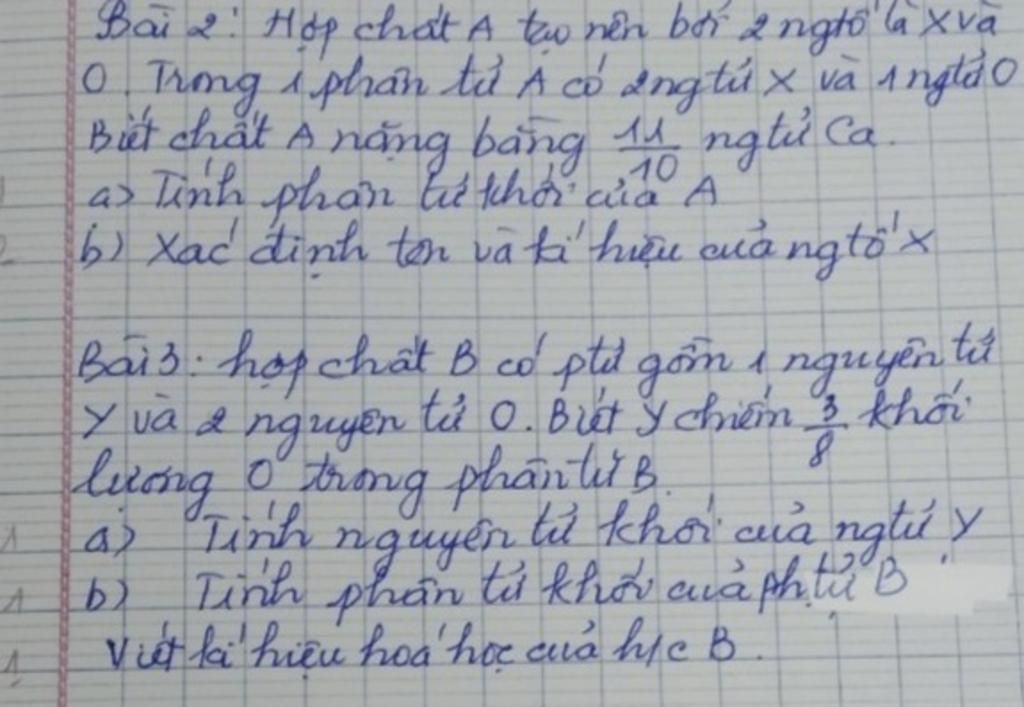 Bài 2: Hợp chất A tạo nên bởi 2 ngtố là X và
O. Trong 1 phân tử A có 2 ngtử X và 1 ngtử O
Biết chất A nặng bằng 11/10 ngtử Ca.
a) Tính phân tử khối của A
b) Xác định tên và kí hiệu của ngtố X
Bài 3: hợp chất B có ptử gồm 1 nguyên tử
Y và 2 nguyên tử O. Biết Y chiếm 3/8 khối
lượng O trong phân tử B.
a) Tính nguyên tử khối của ngtử Y
b) Tính phân tử khối của ph.tử B
Viết kí hiệu hoá học của h/c B.